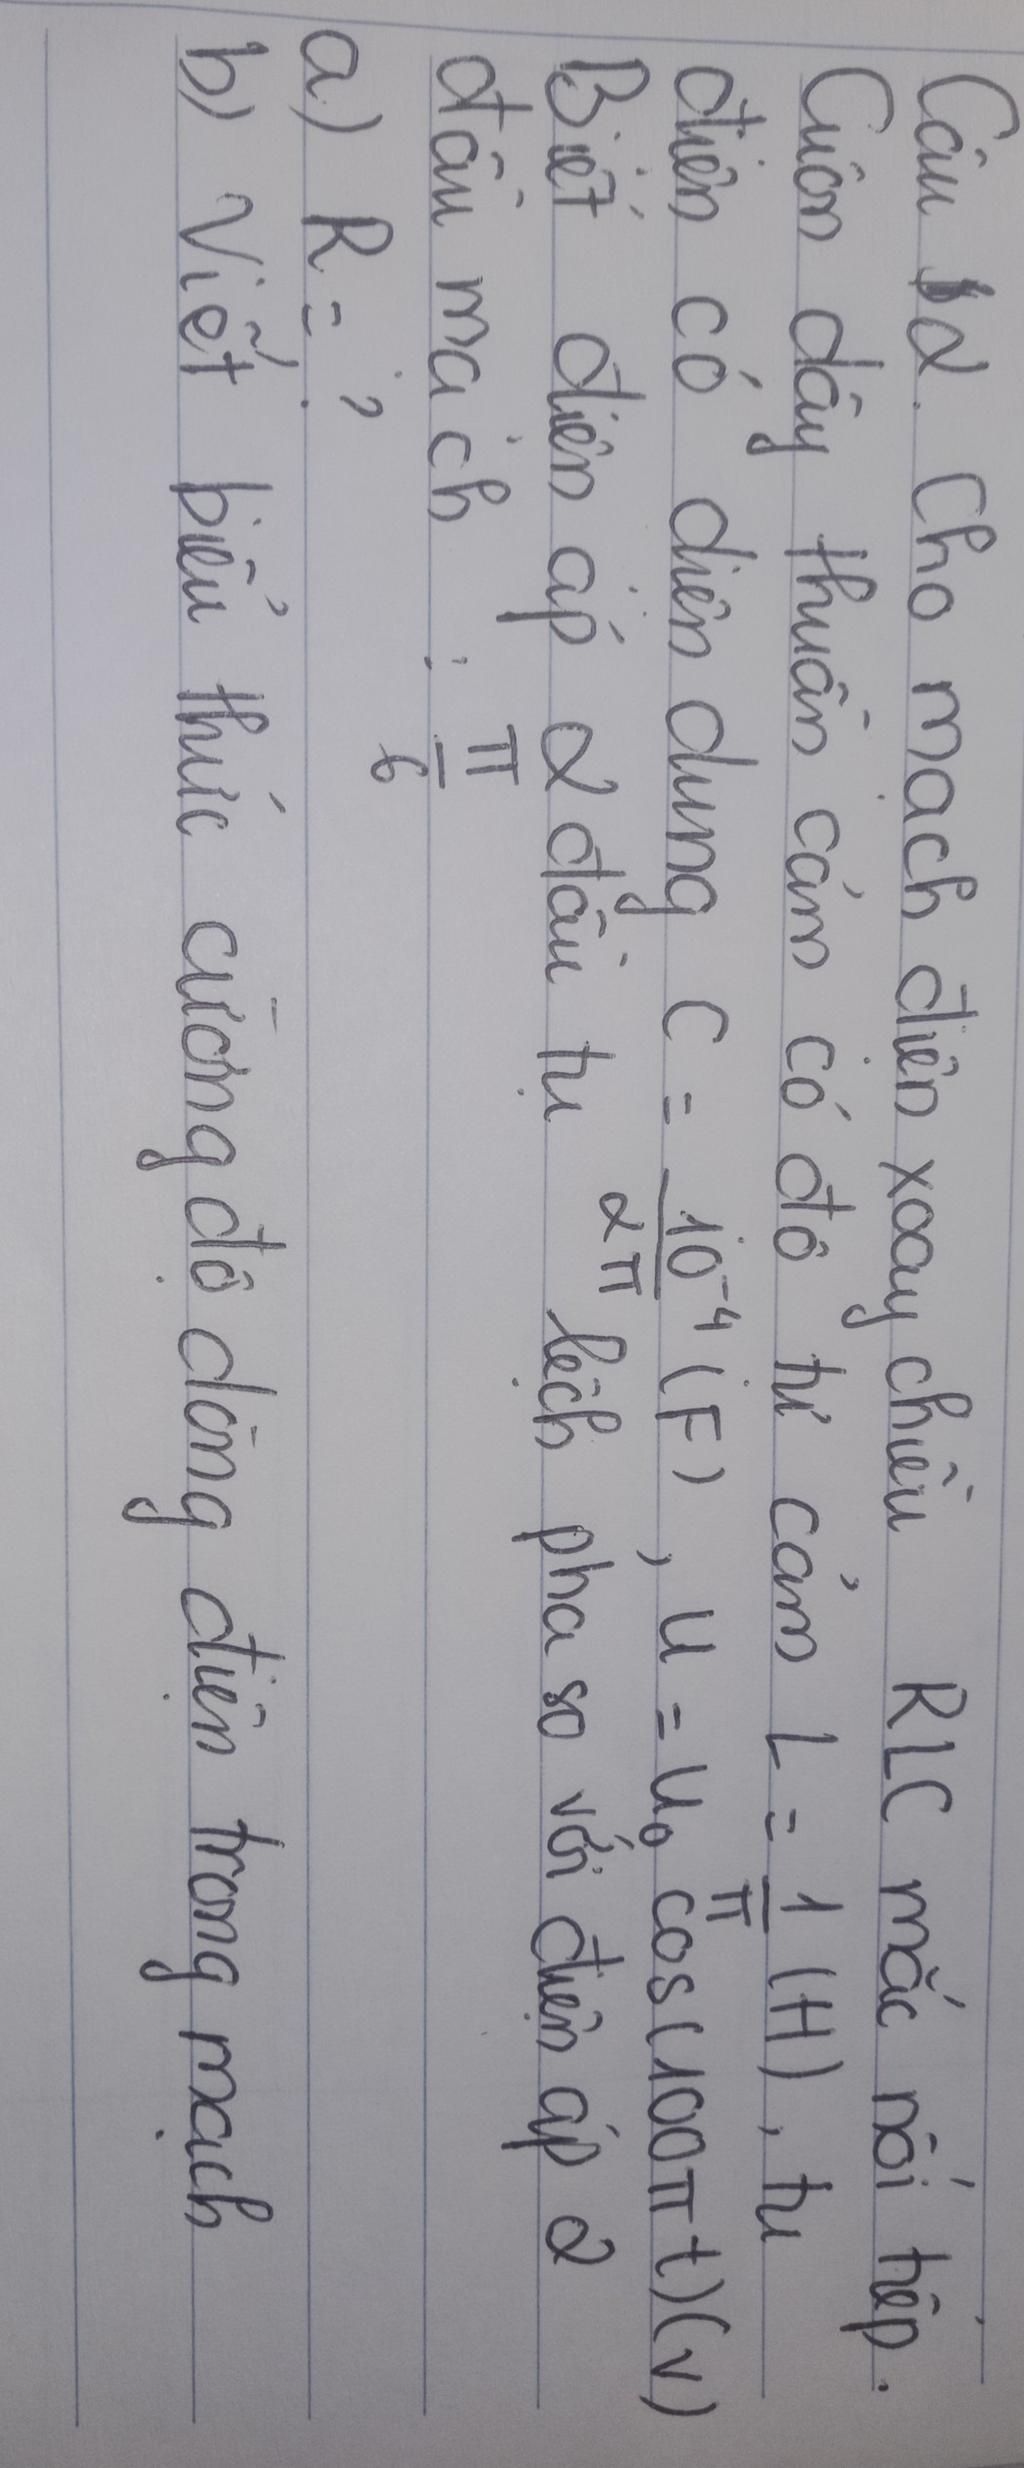 Câu 2. Cho mạch điện xoay chiều RLC mắc nối tiếp.
Cuộn dây thuần cảm có độ tự cảm L = 1/π (H), tụ
điện có điện dung C = 10⁻⁴/2π (F), u = u₀ cos(100πt)(v)
Biết điện áp 2 đầu tụ lệch pha so với điện áp 2
đầu mạch : π/6
a) R = ?
b) Viết biểu thức cường độ dòng điện trong mạch